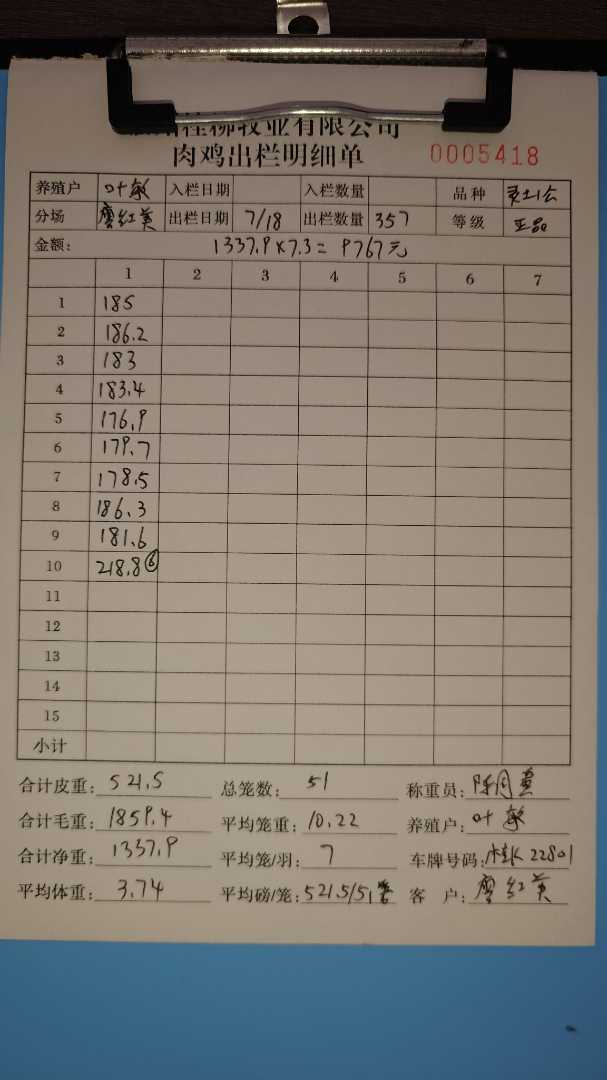 桂柳牧业有限公司
肉鸡出栏明细单 0005418
养殖户 叶敏 入栏日期 入栏数量 品种
分场 廖红英 出栏日期 7/18 出栏数量 357 等级 正品
金额: 1337.9×7.3= 9767元
1 2 3 4 5 6 7
1 185
2 186.2
3 183
4 183.4
5 176.9
6 179.7
7 178.5
8 186.3
9 181.6
10 218.8 ⑥
11
12
13
14
15
小计
合计皮重: 521.5 总笼数: 51 称重员: 陈
合计毛重: 1859.4 平均笼重: 10.22 养殖户: 叶敏
合计净重: 1337.9 平均笼/羽: 7 车牌号码: 桂K 22801
平均体重: 3.74 平均磅/笼: 521.5/51 客 户: 廖红英